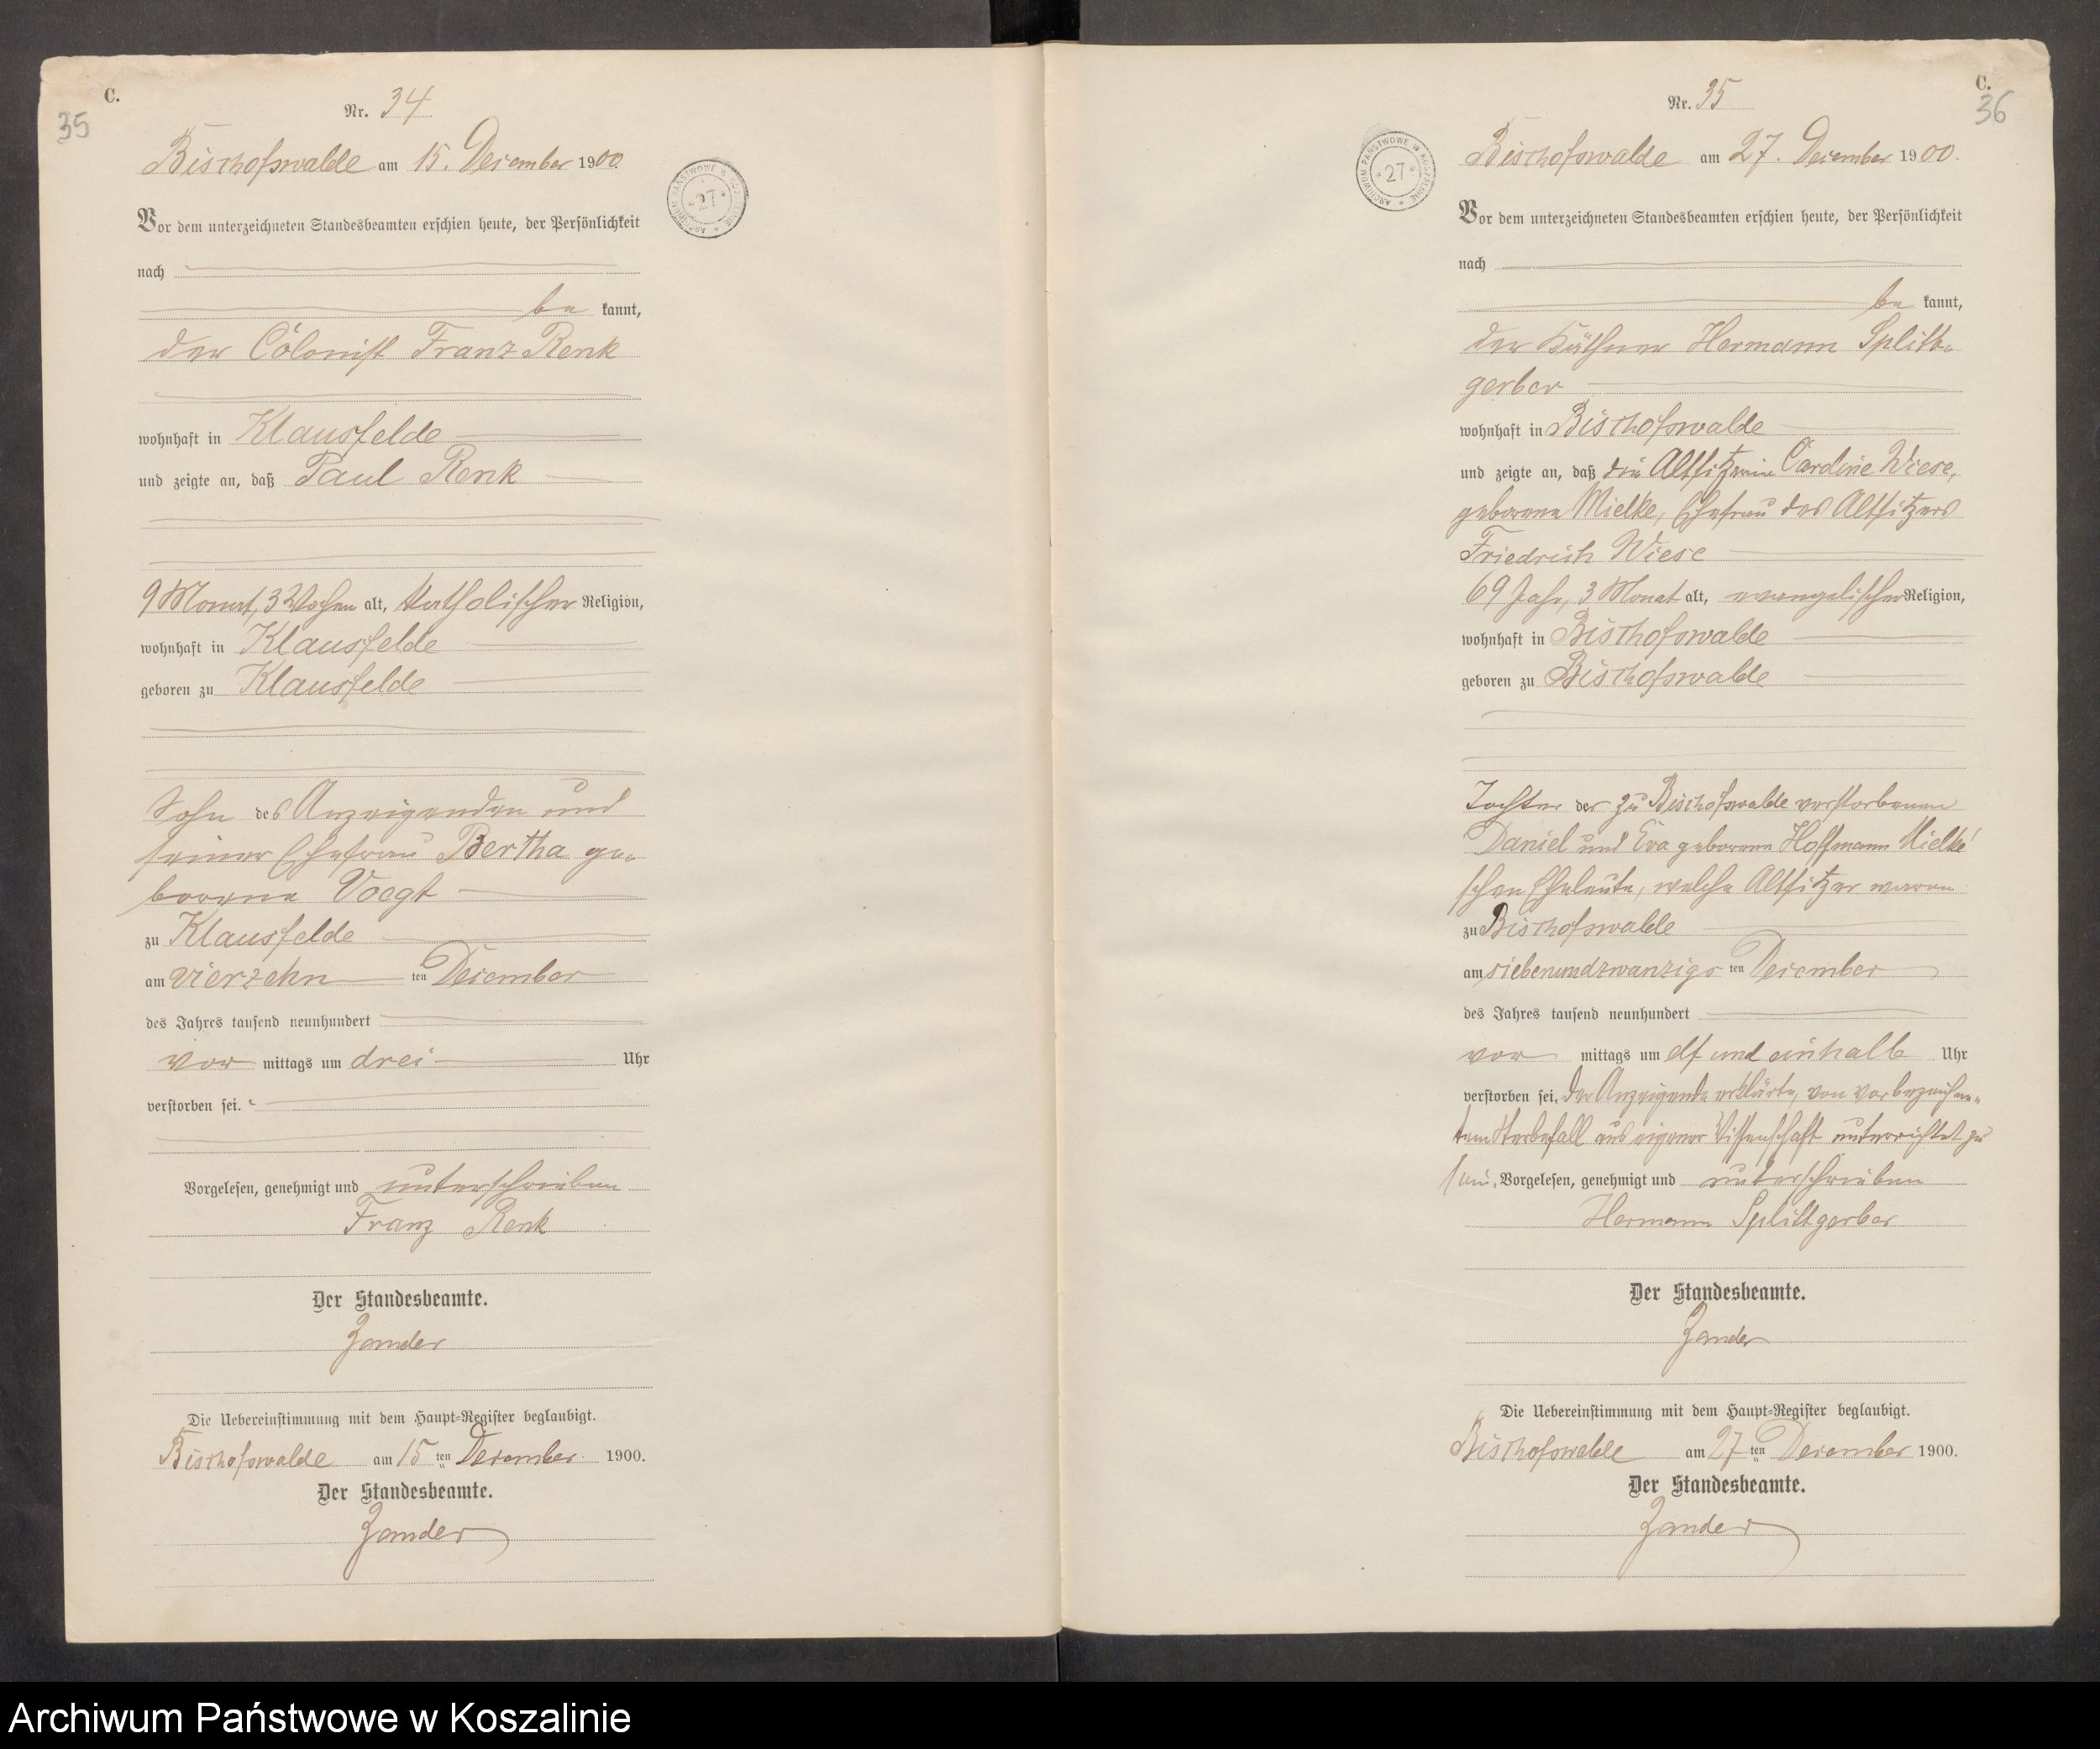 C.
35
Nr. 34
Bischofswalde am 15. Dezember 1900.
ARCHIWUM PAŃSTWOWE W KOSZALINIE * 27 *
Vor dem unterzeichneten Standesbeamten erschien heute, der Persönlichkeit
nach
be kannt,
der Colonist Franz Renk
wohnhaft in Klausfelde
und zeigte an, daß Paul Renk
9 Monat, 3 Wochen alt, katholischer Religion,
wohnhaft in Klausfelde
geboren zu Klausfelde
Sohn des Anzeigenden und
seiner Ehefrau Bertha ge-
borene Voegt
zu Klausfelde
am vierzehn ten Dezember
des Jahres tausend neunhundert
vor mittags um drei Uhr
verstorben sei.
Vorgelesen, genehmigt und unterschrieben
Franz Renk
Der Standesbeamte.
Zander
Die Uebereinstimmung mit dem Haupt-Register beglaubigt.
Bischofswalde am 15 ten Dezember 1900.
Der Standesbeamte.
Zander
C.
36
Nr. 35
Bischofswalde am 27. Dezember 1900.
ARCHIWUM PAŃSTWOWE W KOSZALINIE * 27 *
Vor dem unterzeichneten Standesbeamten erschien heute, der Persönlichkeit
nach
be kannt,
der Käthner Hermann Splitt-
gerber
wohnhaft in Bischofswalde
und zeigte an, daß die Altsitzerin Caroline Wiese,
geborene Mielke, Ehefrau des Altsitzers
Friedrich Wiese
69 Jahr, 3 Monat alt, evangelischer Religion,
wohnhaft in Bischofswalde
geboren zu Bischofswalde
Tochter der zu Bischofswalde verstorbenen
Daniel und Eva geborene Hoffmann Mielke'
schen Eheleute, welche Altsitzer waren
zu Bischofswalde
am siebenundzwanzigs ten Dezember
des Jahres tausend neunhundert
vor mittags um elf und einhalb Uhr
verstorben sei. Der Anzeigende erklärte, von vorbezeichne-
tem Sterbefall aus eigener Wissenschaft unterrichtet zu
sein. Vorgelesen, genehmigt und unterschrieben
Hermann Splittgerber
Der Standesbeamte.
Zander
Die Uebereinstimmung mit dem Haupt-Register beglaubigt.
Bischofswalde am 27 ten Dezember 1900.
Der Standesbeamte.
Zander
Archiwum Państwowe w Koszalinie